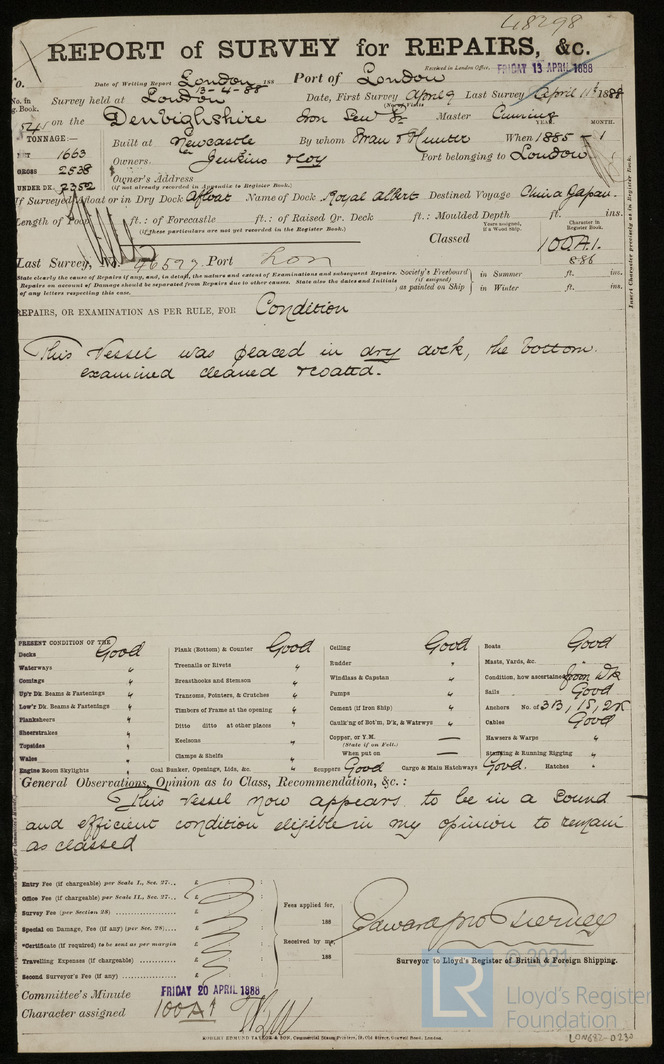 48298
REPORT of SURVEY for REPAIRS, &c.
Received in London Office, FRIDAY 13 APRIL 1888
o. Date of Writing Report London 13-4-88 188 Port of London
No. in
g. Book. Survey held at London Date, First Survey April 9 Last Survey April 11th 1888
54 on the Denbighshire Iron Master Cuming
YEAR. MONTH.
TONNAGE:— Built at Newcastle By whom Swan & Hunter When 1885 - 1
NET 1663
GROSS 2538 Owners. Jenkins & Coy Port belonging to London
UNDER DK. 2352 Owner's Address
(if not already recorded in Appendix to Register Book.)
If Surveyed Afloat or in Dry Dock Afloat Name of Dock Royal Albert Destined Voyage China Japan.
Length of Poop ft.: of Forecastle ft.: of Raised Qr. Deck ft.: Moulded Depth ft. ins.
(if these particulars are not yet recorded in the Register Book.)
Years assigned, if a Wood Ship. Character in Register Book.
Classed 100A1.
8.86
Last Survey, No. 46577 Port Lon
State clearly the cause of Repairs if any, and, in detail, the nature and extent of Examinations and subsequent Repairs.
Repairs on account of Damage should be separated from Repairs due to other causes. State also the dates and Initials
of any letters respecting this case.
Society's Freeboard (if assigned) as painted on Ship in Summer ft. ins.
in Winter ft. ins.
Insert Character precisely as in Register Book.
REPAIRS, OR EXAMINATION AS PER RULE, FOR Condition
This Vessel was placed in dry dock, the bottom
examined cleaned & coated.
PRESENT CONDITION OF THE
Decks Good Plank (Bottom) & Counter Good Ceiling Good Boats Good
Waterways " Treenails or Rivets " Rudder " Masts, Yards, &c.
Comings " Breasthooks and Stemson " Windlass & Capstan " Condition, how ascertained from Dk
Up'r Dk. Beams & Fastenings " Transoms, Pointers, & Crutches " Pumps " Sails Good
Low'r Dk. Beams & Fastenings " Timbers of Frame at the opening " Cement (if Iron Ship) " Anchors No. of 3B, 1S, 2K
Planksheers " Ditto ditto at other places " Caulk'ng of Bot'm, D'k, & Watrwys " Cables Good
Sheerstrakes " Keelsons " Copper, or Y.M. — Hawsers & Warps "
(State if on Felt.)
Topsides " Clamps & Shelfs " When put on — Standing & Running Rigging "
Wales "
Engine Room Skylights " Coal Bunker, Openings, Lids, &c. " Scuppers Good Cargo & Main Hatchways Good. Hatches "
General Observations, Opinion as to Class, Recommendation, &c.:
This Vessel now appears to be in a sound
and efficient condition eligible in my opinion to remain
as classed
Entry Fee (if chargeable) per Scale I., Sec. 27... £ : :
Office Fee (if chargeable) per Scale II., Sec. 27... £ : :
Survey Fee (per Section 28) £ : :
Special on Damage, Fee (if any) (per Sec. 28).... £ : :
*Certificate (if required) to be sent as per margin £
Travelling Expenses (if chargeable) £ : :
Second Surveyor's Fee (if any) £ : :
Fees applied for,
188
Received by me,
188
Edward Jno Tierney
Surveyor to Lloyd's Register of British & Foreign Shipping.
Committee's Minute FRIDAY 20 APRIL 1888
Character assigned 100A1
ROBERT EDMUND TAYLOR & SON, Commercial Steam Printers, 19, Old Street, Goswell Road, London.
© 2021
LR
Lloyd's Register
Foundation
LON682-0230